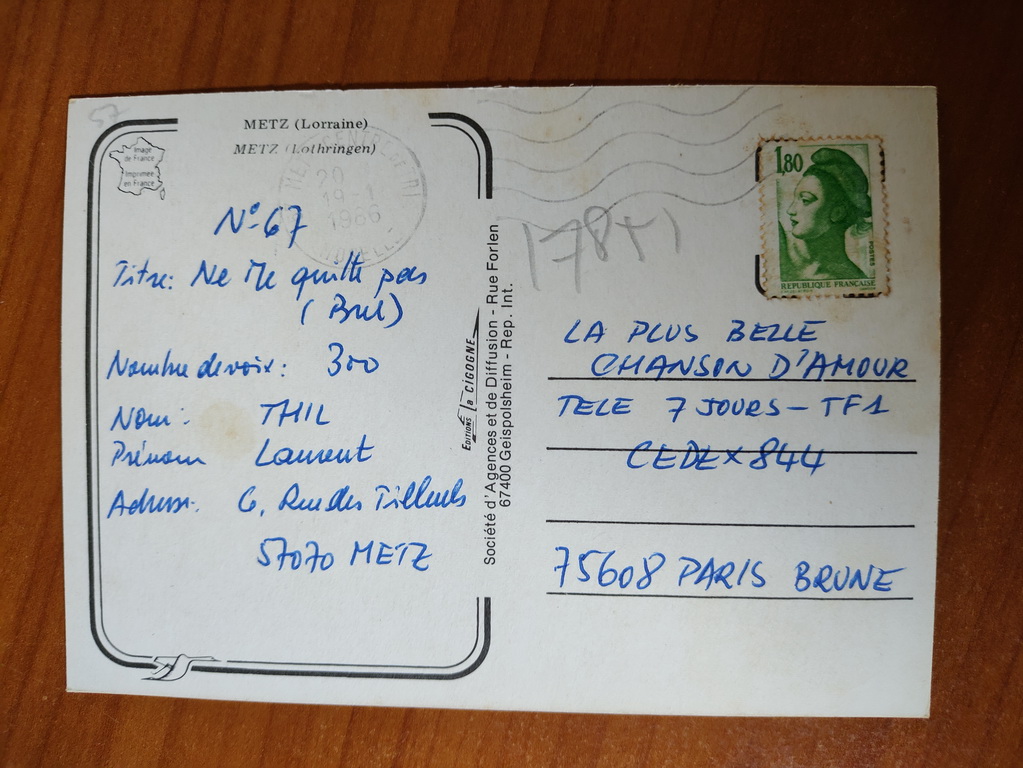 57
METZ (Lorraine)
METZ (Lothringen)
Image
de France
Imprimée
en France
20 H
19-1
1986
N° 67
Titre: Ne Me quitte pas
(Brel)
Nombre de voix: 300
Nom: THIL
Prénom Laurent
Adresse: 6, Rue des Tilleuls
57070 METZ
EDITIONS la CIGOGNE
Société d'Agences et de Diffusion - Rue Forlen
67400 Geispolsheim - Rep. Int.
1,80
POSTES
REPUBLIQUE FRANÇAISE
178+1
LA PLUS BELLE
CHANSON D'AMOUR
TELE 7 JOURS - TF1
CEDEX 844
75608 PARIS BRUNE